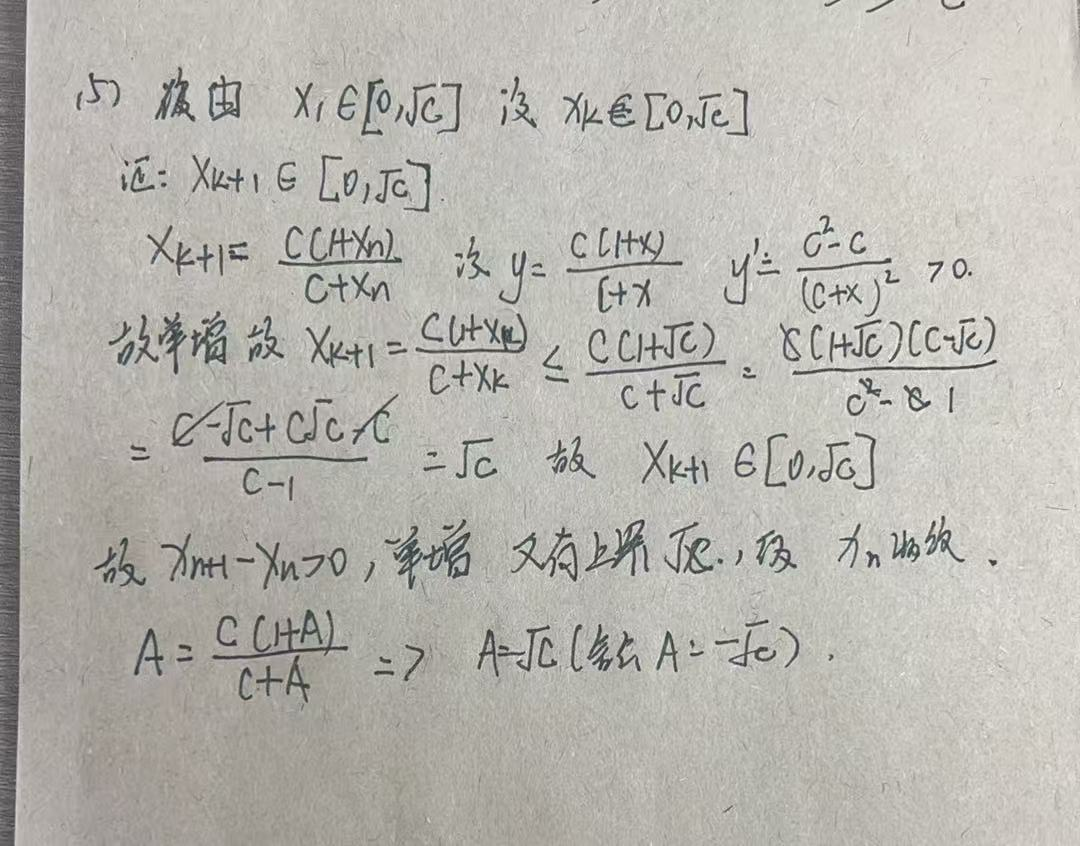 (5) 假由 X₁∈[0,√c] 设 Xk∈[0,√c]
证: Xk+1 ∈ [0,√c].
Xk+1 = C(1+Xn)/(C+Xn) 设 y = C(1+x)/(C+x) y' = (C²-C)/(C+x)² >0.
故单增 故 Xk+1 = C(1+Xk)/(C+Xk) ≤ C(1+√c)/(C+√c) = C(1+√c)(C-√c)/(C²-C) 1
= (C-√c+C√c-C)/(C-1) = √c 故 Xk+1 ∈[0,√c]
故 Xn+1-Xn>0, 单增 又有上界 √c., 故 Xn 收敛.
A = C(1+A)/(C+A) => A=√c (舍去 A=-√c).